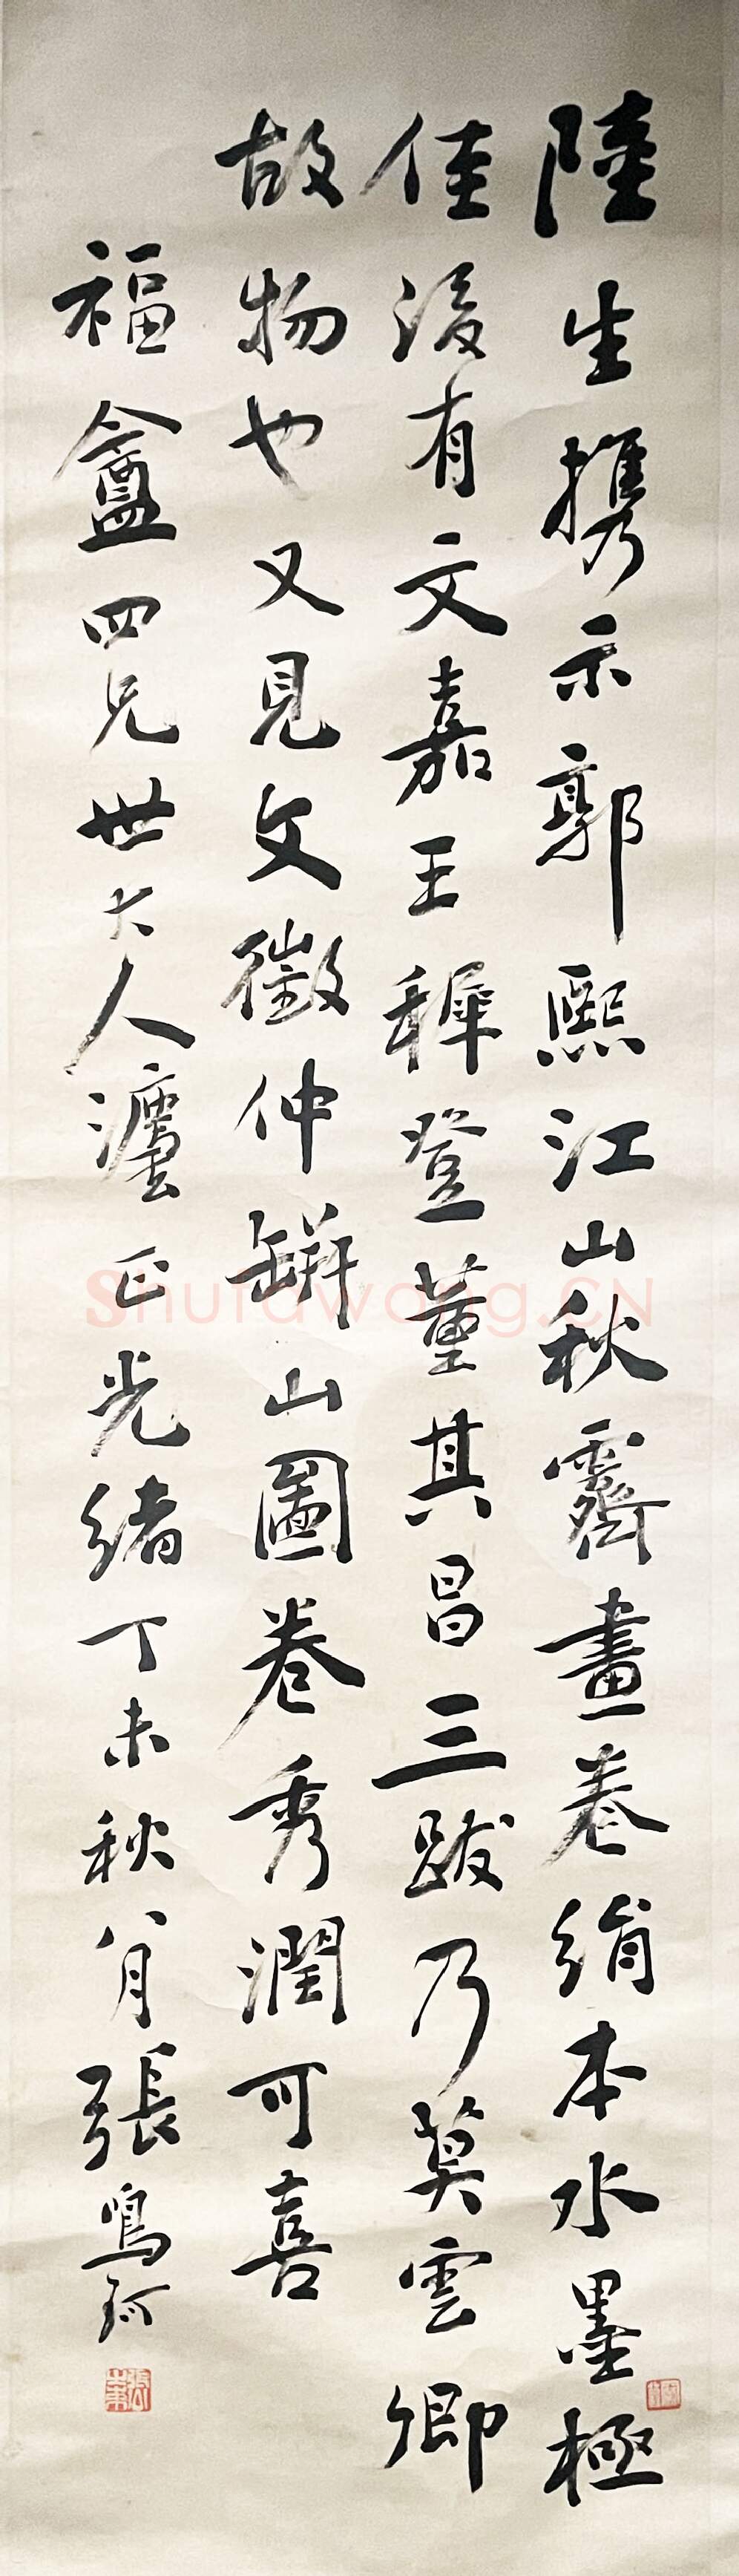 陸生攜示郭熙江山秋霽畫卷絹本水墨極
佳後有文嘉王穉登董其昌三跋乃莫雲卿
故物也又見文徵仲缾山圖卷秀潤可喜
福盦四兄世大人灋正光緒丁未秋八月張鳴珂
Shufawang.CN